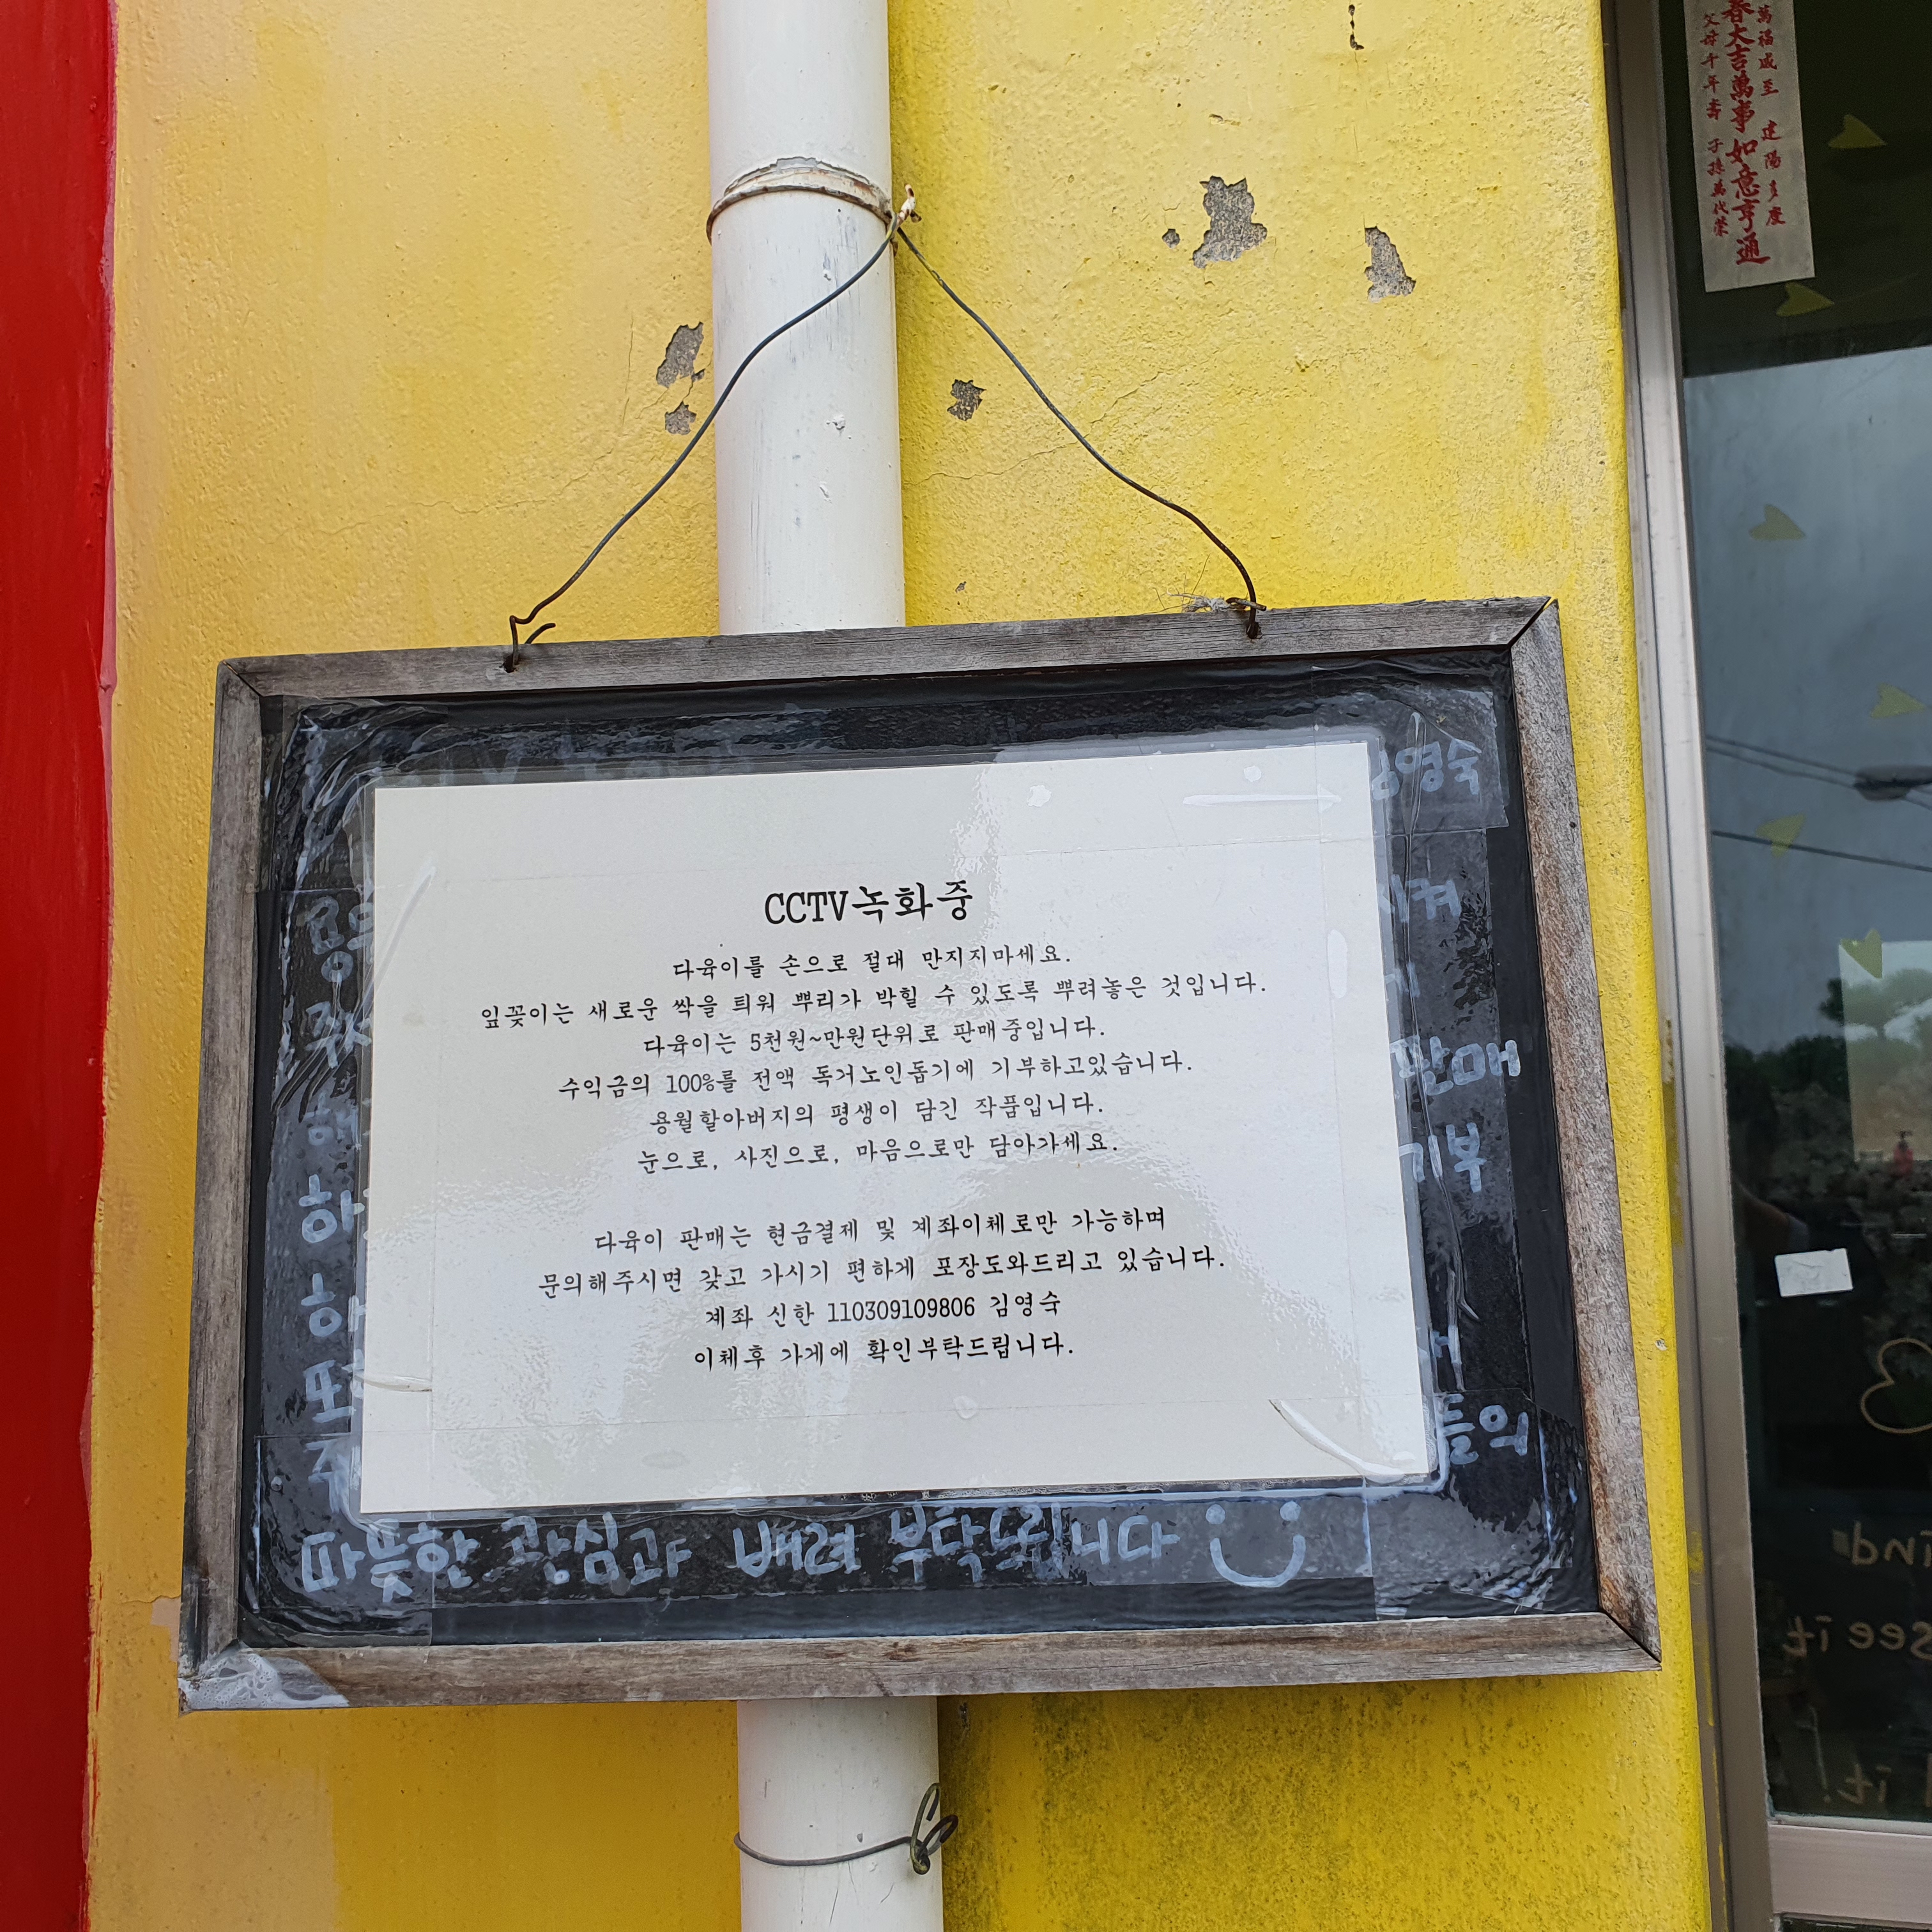 萬福咸至 建陽多慶
春大吉 萬事如意亨通
父母千年壽 子孫萬代榮
김영숙
CCTV녹화중
다육이를 손으로 절대 만지지마세요.
잎꽂이는 새로운 싹을 틔워 뿌리가 박힐 수 있도록 뿌려놓은 것입니다.
다육이는 5천원~만원단위로 판매중입니다.
수익금의 100%를 전액 독거노인돕기에 기부하고있습니다.
용월할아버지의 평생이 담긴 작품입니다.
눈으로, 사진으로, 마음으로만 담아가세요.
다육이 판매는 현금결제 및 계좌이체로만 가능하며
문의해주시면 갖고 가시기 편하게 포장도와드리고 있습니다.
계좌 신한 110309109806 김영숙
이체후 가게에 확인부탁드립니다.
판매
기부
들의
따뜻한 관심과 배려 부탁드립니다
see it
it!